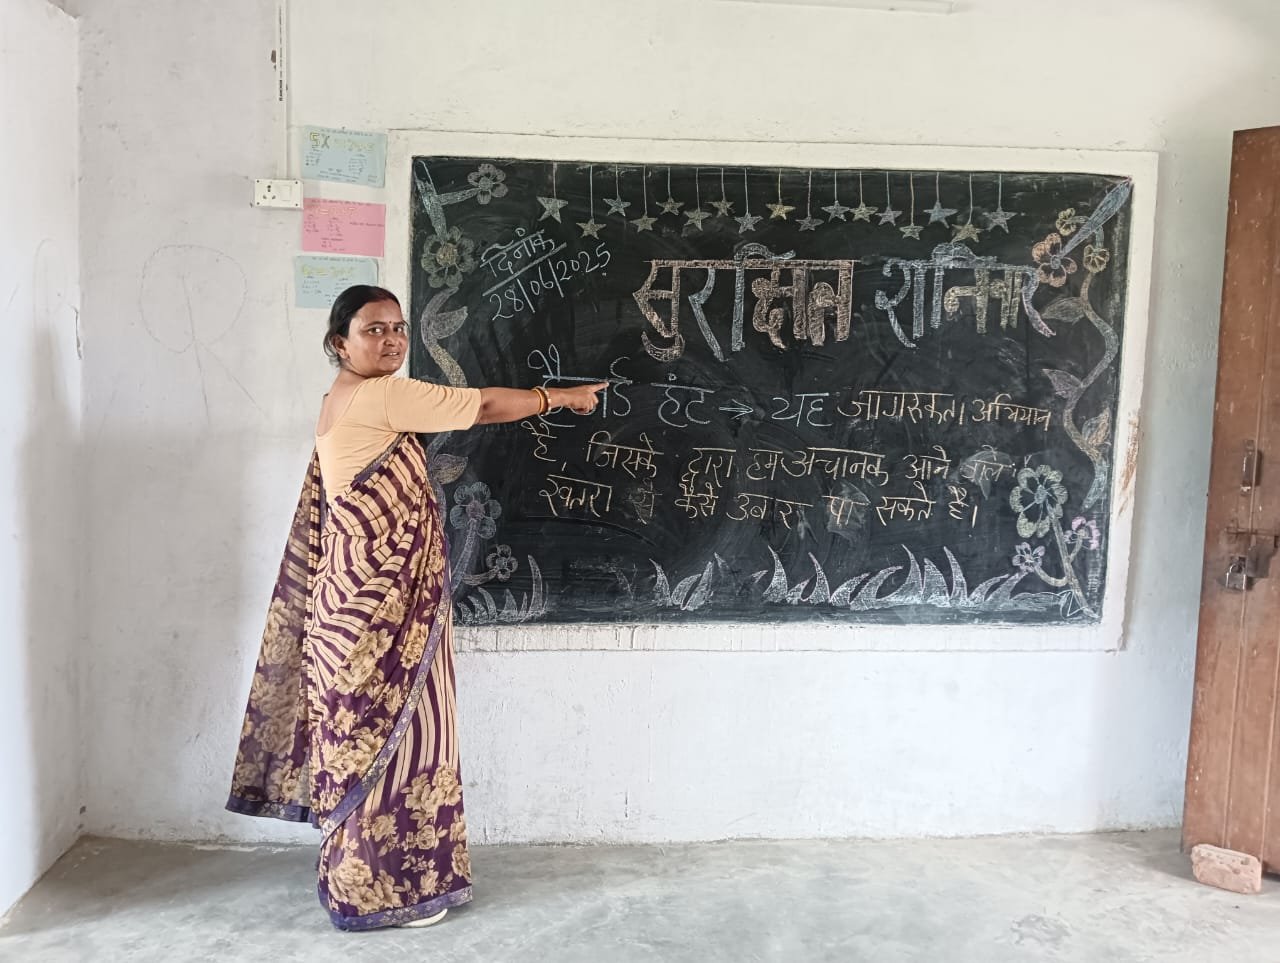 दिनांक
28/06/2025
सुरक्षित शनिवार
हैजर्ड हंट → यह जागरूकता अभियान
है, जिसके द्वारा हम अचानक आने वाले
खतरा से कैसे उबारा पा सकते है।